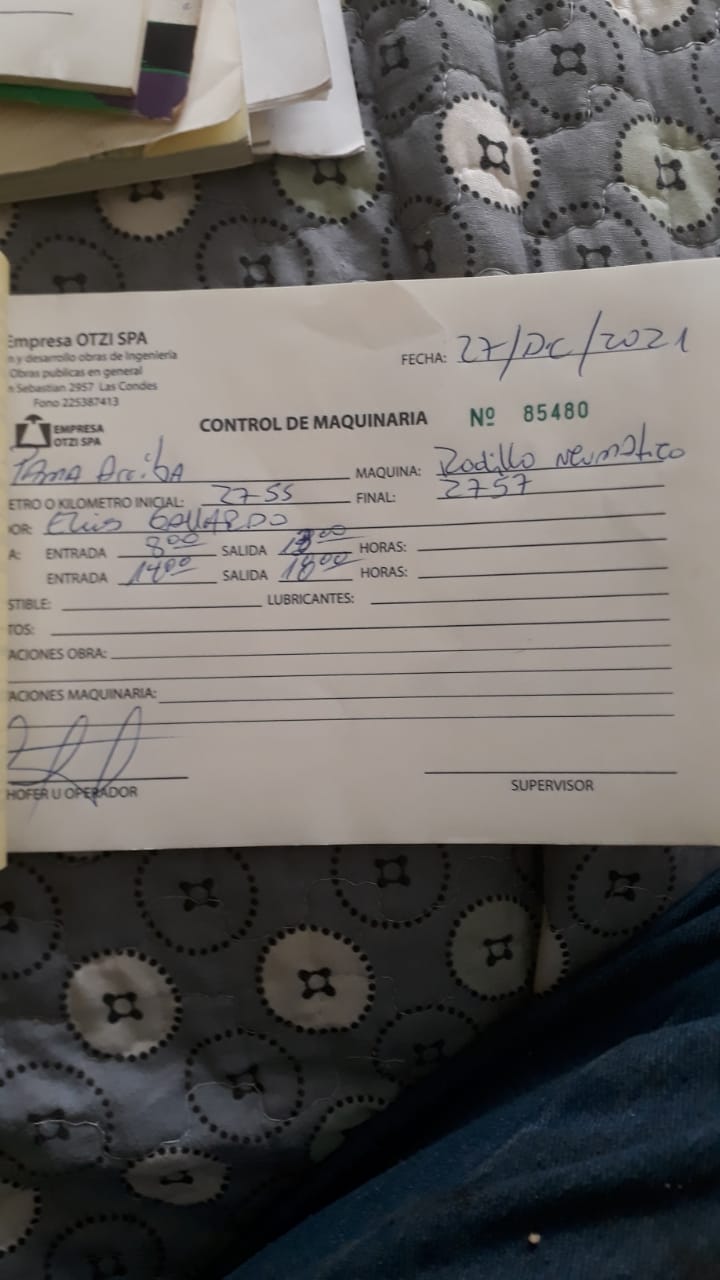 Empresa OTZI SPA
n y desarrollo obras de Ingeniería
Obras publicas en general
n Sebastian 2957 Las Condes
Fono 225387413
FECHA: 27/Dic/2021
EMPRESA
OTZI SPA
CONTROL DE MAQUINARIA Nº 85480
Arriba MAQUINA: Rodillo Neumatico
ETRO O KILOMETRO INICIAL: 2755 FINAL: 2757
OR: GALLARDO
A: ENTRADA 8:00 SALIDA 13:00 HORAS:
ENTRADA 14:00 SALIDA 18:00 HORAS:
STIBLE: LUBRICANTES:
TOS:
ACIONES OBRA:
ACIONES MAQUINARIA:
HOFER U OPERADOR
SUPERVISOR